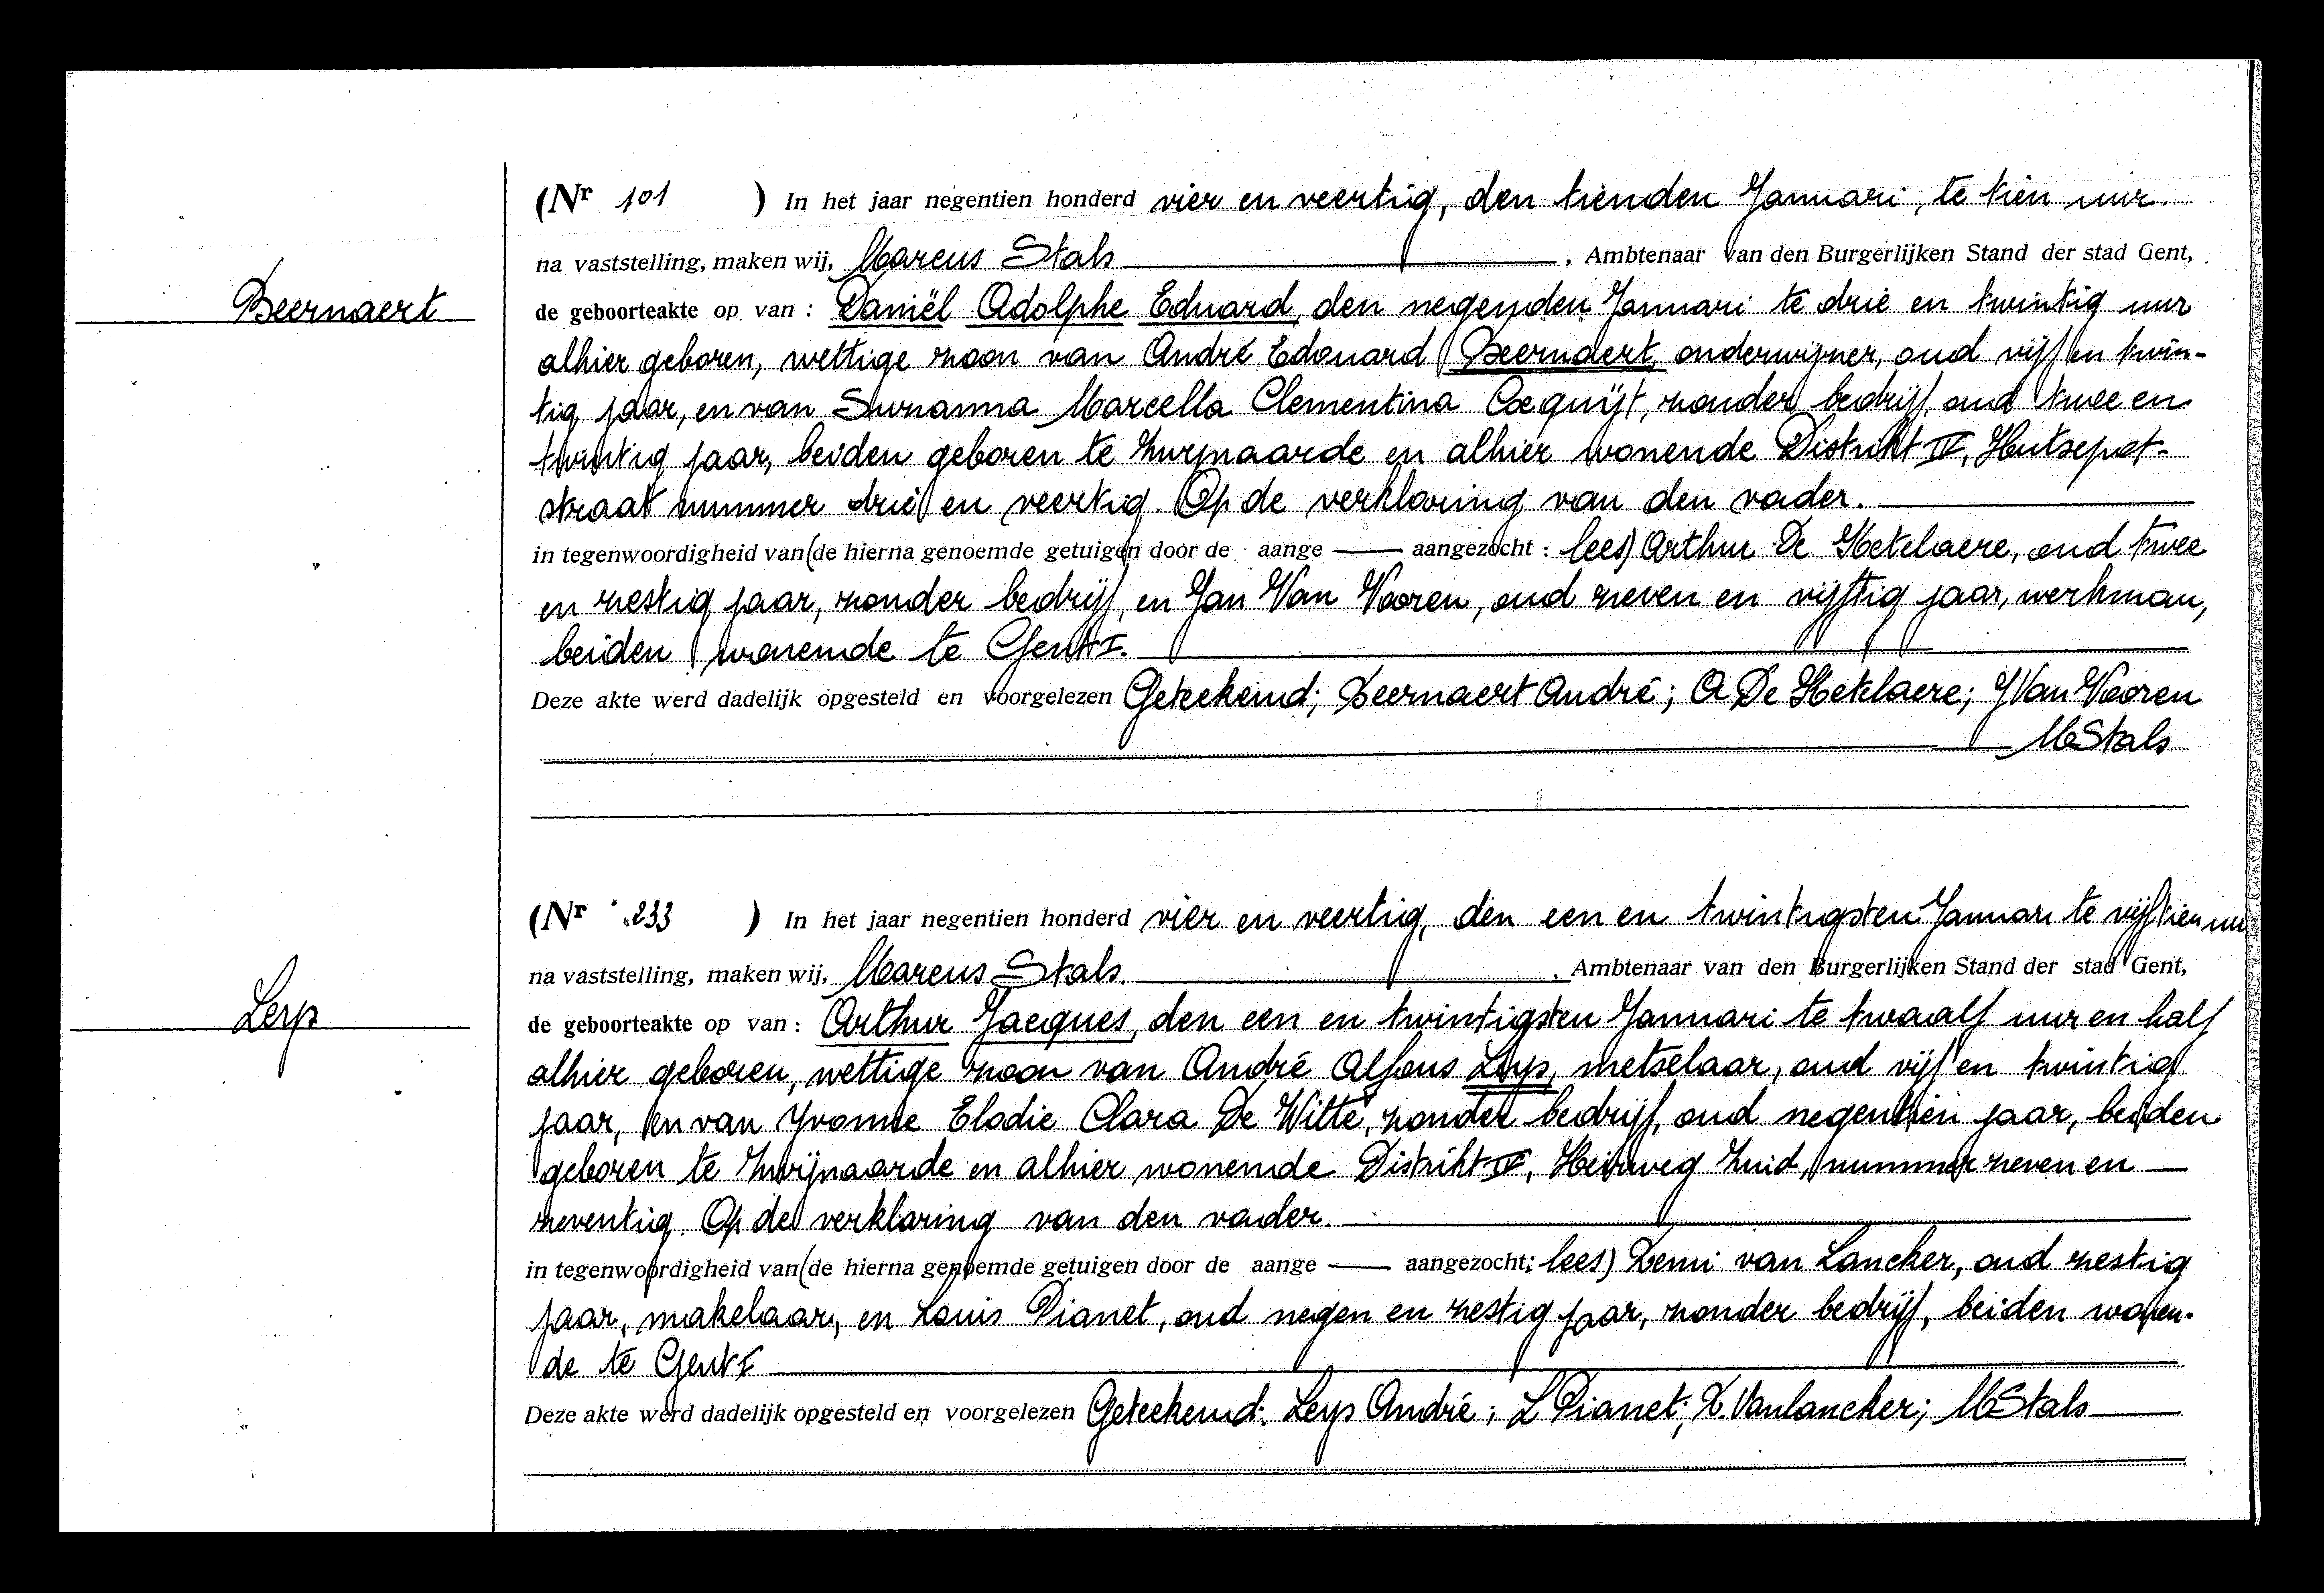 (Nr 101 ) In het jaar negentien honderd vier en veertig, den tienden Januari, te tien uur.
na vaststelling, maken wij, Marcus Stals, Ambtenaar van den Burgerlijken Stand der stad Gent,
Beernaert
de geboorteakte op van : Daniël Adolphe Eduard, den negenden Januari te drie en twintig uur
alhier geboren, wettige zoon van André Edouard Beernaert, onderwijzer, oud vijf en twin-
tig jaar, en van Suzanna Marcella Clementina Cocquijt, zonder bedrijf, oud twee en
twintig jaar, beiden geboren te Zwijnaarde en alhier wonende Distrikt IV, Hutsepot-
straat nummer drie en veertig. Op de verklaring van den vader.
in tegenwoordigheid van (de hierna genoemde getuigen door de aange — aangezocht : lees) Arthur De Ketelaere, oud twee
en zestig jaar, zonder bedrijf, en Jan Van Vooren, oud zeven en vijftig jaar, werkman,
beiden wonende te Gent I.
Deze akte werd dadelijk opgesteld en voorgelezen Geteekend; Beernaert André; A De Ketelaere; J Van Vooren
M Stals
(Nr 233 ) In het jaar negentien honderd vier en veertig, den een en twintigsten Januari te vijftien uu
na vaststelling, maken wij, Marcus Stals. , Ambtenaar van den Burgerlijken Stand der stad Gent,
Leys
de geboorteakte op van : Arthur Jacques, den een en twintigsten Januari te twaalf uur en half
alhier geboren, wettige zoon van André Alfons Leys, metselaar, oud vijf en twintig
jaar, en van Yvonne Elodie Clara De Witte, zonder bedrijf, oud negentien jaar, beiden
geboren te Zwijnaarde en alhier wonende Distrikt IV, Heirweg Zuid, nummer zeven en
zeventig. Op de verklaring van den vader.
in tegenwoordigheid van (de hierna genoemde getuigen door de aange — aangezocht: lees) Remi van Lancker, oud zestig
jaar, makelaar, en Louis Pianet, oud negen en zestig jaar, zonder bedrijf, beiden wonen-
de te Gent I
Deze akte werd dadelijk opgesteld en voorgelezen Geteekend: Leys André; L Pianet; R. Vanlancker; M Stals